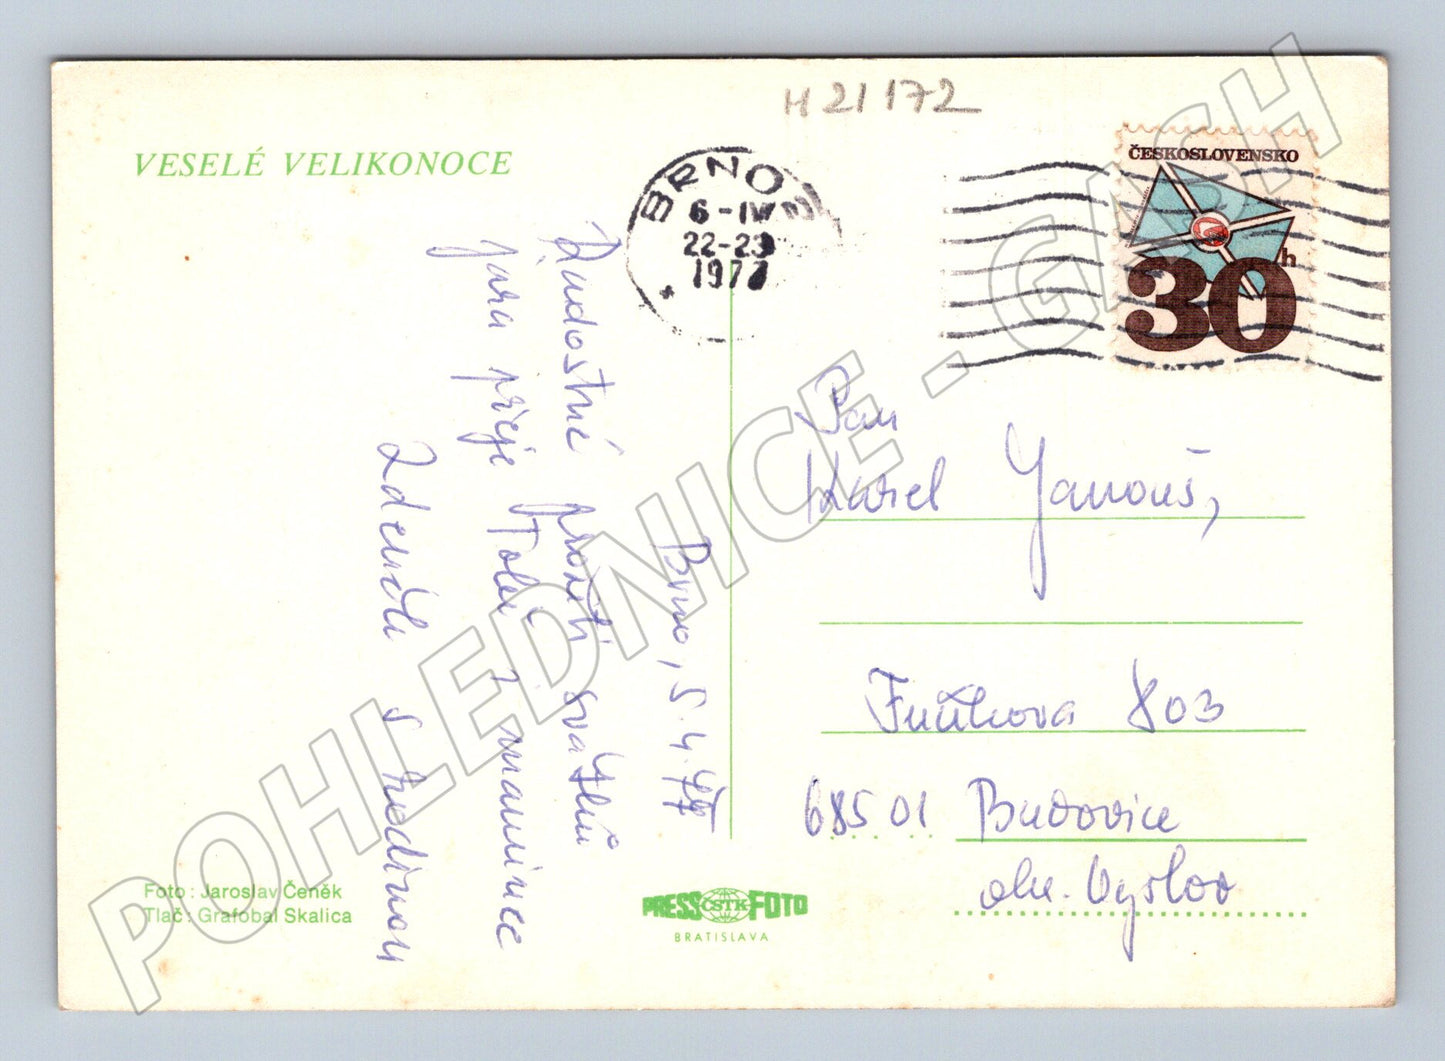 H 21 172
VESELÉ VELIKONOCE
BRNO 2
6-IV
22-23
1977
ČESKOSLOVENSKO
30h
Brno, 5.4.77
Radostné prožití svátků
jara přeje Tobě i mamince
Zdeněk s rodinou
Pan
Karel Janouš,
Fučíkova 803
685 01 Bučovice
okr. Vyškov
Foto: Jaroslav Čeněk
Tlač: Grafobal Skalica
PRESS ČSTK FOTO
BRATISLAVA
POHLEDNICE - GASH